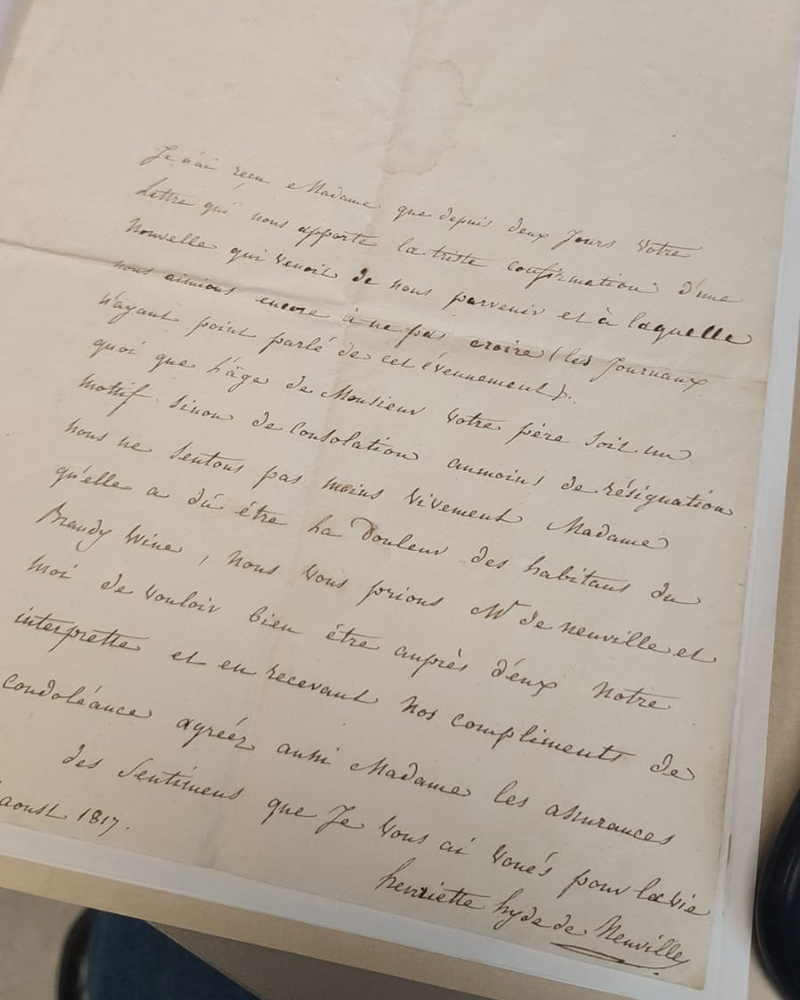 Je n'ai reçu Madame que depuis deux Jours Votre
Lettre qui nous apporte la triste confirmation d'une
Nouvelle qui venoit de nous parvenir et à laquelle
nous aimions encore à ne pas croire (les Journaux
n'ayant point parlé de cet évennement).
quoi que l'âge de Monsieur Votre père soit un
motif sinon de consolation aumoins de résignation
nous ne sentons pas moins vivement Madame
qu'elle a dû être la Douleur des habitans du
Brandy Wine, Nous vous prions Mr de Neuville et
moi de vouloir bien être auprès d'eux Notre
interprette et en recevant Nos compliments de
condoléance agréez aussi Madame les assurances
des Sentimens que Je vous ai voués pour la vie
henriette hyde de Neuville
aoust 1817.